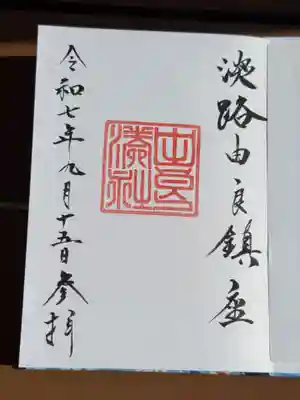 淡路由良鎮座
由良
湊社
令和七年九月十五日参拝